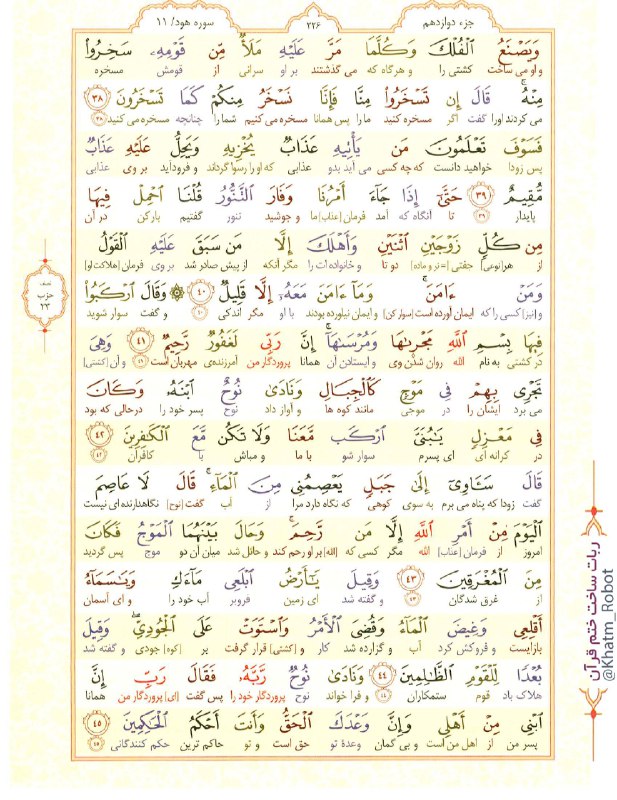 جزء دوازدهم
۲۲۶
سوره هود/ ۱۱
وَيَصْنَعُ ٱلْفُلْكَ وَكُلَّمَا مَرَّ عَلَيْهِ مَلَأٌ مِّن قَوْمِهِۦ سَخِرُوا۟
و او می ساخت کشتی را و هر گاه که می گذشتند بر او سرانی از قومش مسخره
مِنْهُ ۚ قَالَ إِن تَسْخَرُوا۟ مِنَّا فَإِنَّا نَسْخَرُ مِنكُمْ كَمَا تَسْخَرُونَ ۳۸
می کردند او را گفت اگر مسخره کنید ما را پس همانا مسخره می کنیم شما را چنانچه مسخره می کنید ۳۸
فَسَوْفَ تَعْلَمُونَ مَن يَأْتِيهِ عَذَابٌ يُخْزِيهِ وَيَحِلُّ عَلَيْهِ عَذَابٌ
پس زودا خواهید دانست که چه کسی می آید بدو عذابی که او را رسوا گرداند و فرود آید بر وی عذابی
مُّقِيمٌ ۳۹ حَتَّىٰٓ إِذَا جَآءَ أَمْرُنَا وَفَارَ ٱلتَّنُّورُ قُلْنَا ٱحْمِلْ فِيهَا
پایدار ۳۹ تا آنگاه که آمد فرمان [عذاب] ما و جوشید تنور گفتیم بار کن در آن
مِن كُلٍّ زَوْجَيْنِ ٱثْنَيْنِ وَأَهْلَكَ إِلَّا مَن سَبَقَ عَلَيْهِ ٱلْقَوْلُ
از هر [نوعی] جفتی [= نر و ماده] دو تا و خانواده ات را مگر آنکه از پیش صادر شد بر وی فرمان [هلاکت او]
وَمَنْ ءَامَنَ ۚ وَمَآ ءَامَنَ مَعَهُۥٓ إِلَّا قَلِيلٌ ۴۰ ۞ وَقَالَ ٱرْكَبُوا۟
و [نیز] کسی را که ایمان آورده است [سوار کن] و ایمان نیاورده بودند با او مگر اندکی ۴۰ و گفت سوار شوید
فِيهَا بِسْمِ ٱللَّهِ مَجْر۪ىٰهَا وَمُرْسَىٰهَآ ۚ إِنَّ رَبِّى لَغَفُورٌ رَّحِيمٌ ۴۱ وَهِىَ
در کشتی به نام الله روان شدن وی و ایستادن آن همانا پروردگار من آمرزنده ی مهربان است ۴۱ و آن [کشتی]
تَجْرِى بِهِمْ فِى مَوْجٍ كَٱلْجِبَالِ وَنَادَىٰ نُوحٌ ٱبْنَهُۥ وَكَانَ
می برد ایشان را در موجی مانند کوه ها و آواز داد نوح پسر خود را درحالی که بود
فِى مَعْزِلٍ يَٰبُنَىَّ ٱرْكَب مَّعَنَا وَلَا تَكُن مَّعَ ٱلْكَٰفِرِينَ ۴۲
در کرانه ای ای پسرم سوار شو با ما و مباش با کافران ۴۲
قَالَ سَـَٔاوِىٓ إِلَىٰ جَبَلٍ يَعْصِمُنِى مِنَ ٱلْمَآءِ ۚ قَالَ لَا عَاصِمَ
گفت زودا که پناه می برم به سوی کوهی که نگاه دارد مرا از آب گفت [نوح] نگاهدارنده ای نیست
ٱلْيَوْمَ مِنْ أَمْرِ ٱللَّهِ إِلَّا مَن رَّحِمَ ۚ وَحَالَ بَيْنَهُمَا ٱلْمَوْجُ فَكَانَ
امروز از فرمان [عذاب] الله مگر کسی که [الله] بر او رحم کند و حائل شد میان آن دو موج پس گردید
مِنَ ٱلْمُغْرَقِينَ ۴۳ وَقِيلَ يَٰٓأَرْضُ ٱبْلَعِى مَآءَكِ وَيَٰسَمَآءُ
از غرق شدگان ۴۳ و گفته شد ای زمین فروبر آب خود را و ای آسمان
أَقْلِعِى وَغِيضَ ٱلْمَآءُ وَقُضِىَ ٱلْأَمْرُ وَٱسْتَوَتْ عَلَى ٱلْجُودِىِّ ۖ وَقِيلَ
بازایست و فروکش کرد آب و گزارده شد کار و [کشتی] قرار گرفت بر [کوه] جودی و گفته شد
بُعْدًا لِّلْقَوْمِ ٱلظَّٰلِمِينَ ۴۴ وَنَادَىٰ نُوحٌ رَّبَّهُۥ فَقَالَ رَبِّ إِنَّ
هلاک باد قوم ستمکاران ۴۴ و فرا خواند نوح پروردگار خود را پس گفت [ای] پروردگار من همانا
ٱبْنِى مِنْ أَهْلِى وَإِنَّ وَعْدَكَ ٱلْحَقُّ وَأَنتَ أَحْكَمُ ٱلْحَٰكِمِينَ ۴۵
پسر من از اهل من است و بی گمان وعده تو حق است و تو حاکم ترین حکم کنندگانی ۴۵
نصف
حزب
۲۳
ربات ساخت ختم قرآن
@Khatm_Robot